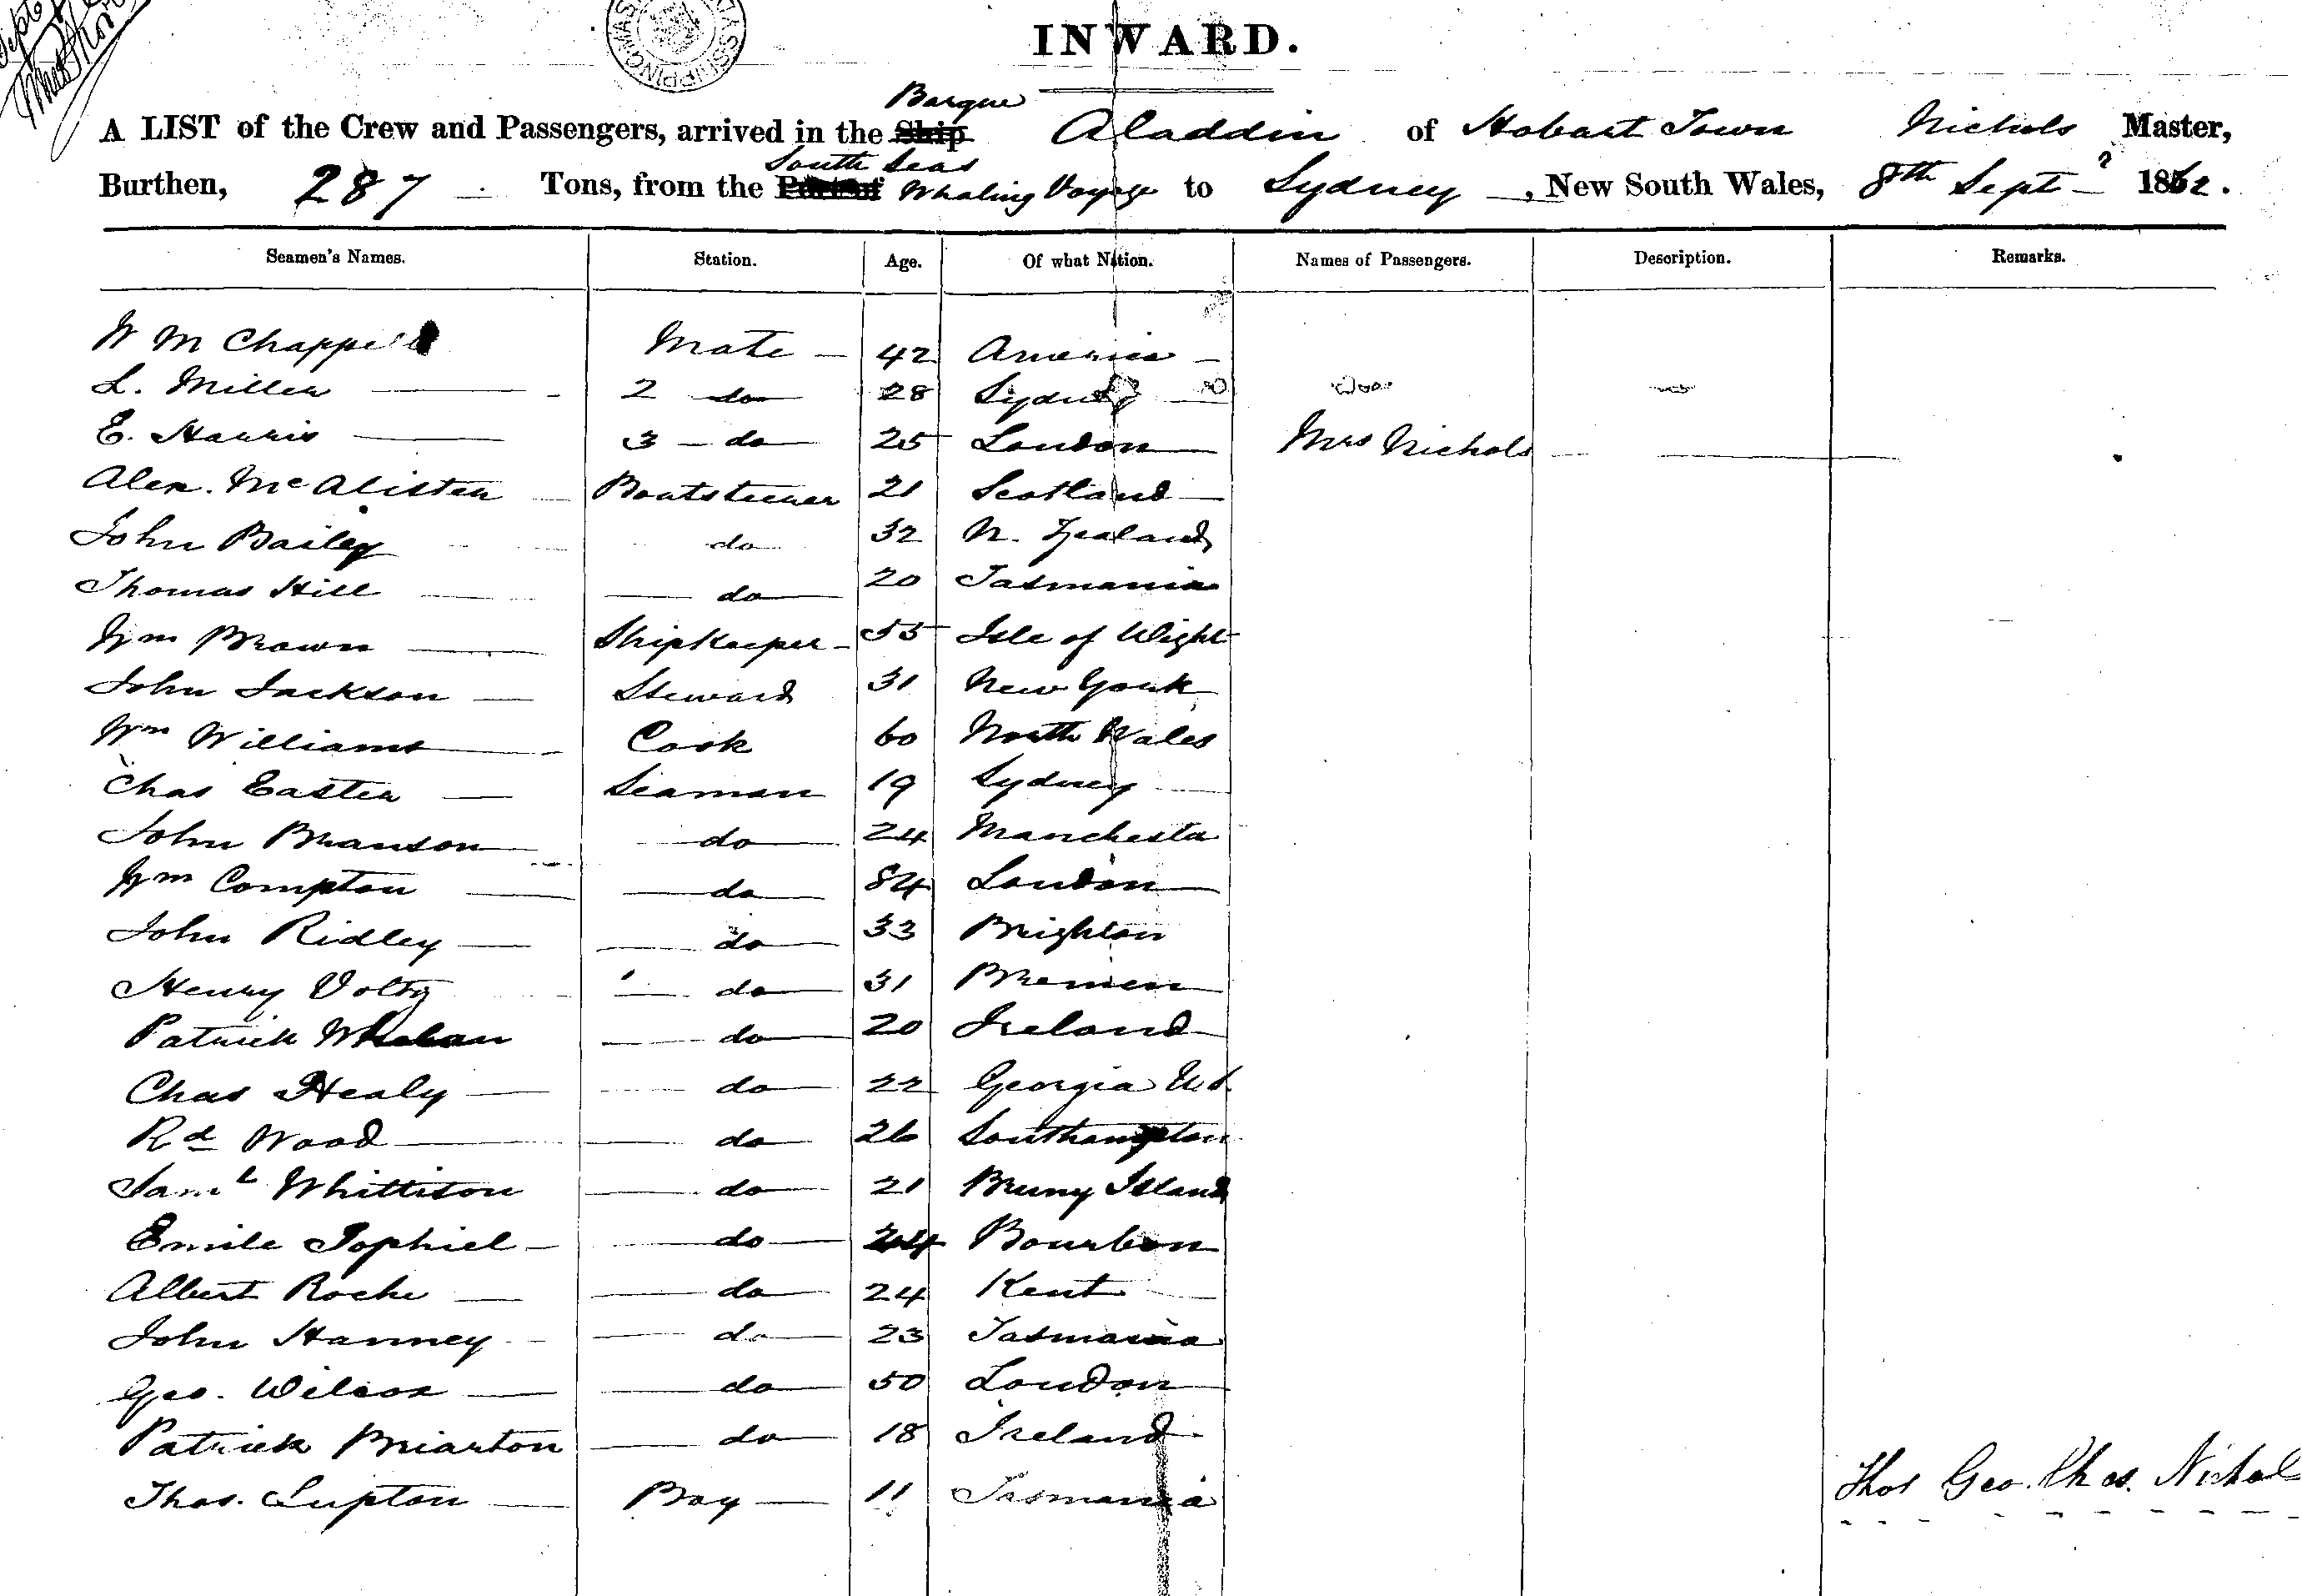 INWARD.
Barque
A LIST of the Crew and Passengers, arrived in the Ship Aladdin of Hobart Town Nichols Master,
South Seas
Burthen, 287 Tons, from the Port of Whaling Voyage to Sydney, New South Wales, 8th Sept 1862.
Seamen's Names. Station. Age. Of what Nation. Names of Passengers. Description. Remarks.
W M Chappell Mate 42 America
L. Miller 2 do 28 Sydney
E. Harris 3 do 25 London Mrs Nichols
Alex. McAlister Boatsteerer 21 Scotland
John Bailey do 32 N. Zealand
Thomas Hill do 20 Tasmania
Wm Brown Shipkeeper 55 Isle of Wight
John Jackson Steward 31 New York
Wm Williams Cook 60 North Wales
Chas Easter Seaman 19 Sydney
John Branson do 24 Manchester
Wm Compton do 84 London
John Ridley do 33 Brighton
Henry Volty do 31 Bremen
Patrick Whelan do 20 Ireland
Chas Healy do 22 Georgia U.S.
Rd Wood do 26 Southampton
Saml Whittison do 21 Bruny Island
Emile Sophiel do 24 Bourbon
Albert Roche do 24 Kent
John Hanney do 23 Tasmania
Geo. Wilcox do 50 London
Patrick Briarton do 18 Ireland
Thos. Lupton Boy 11 Tasmania
Thos Geo. Chas. Nichols